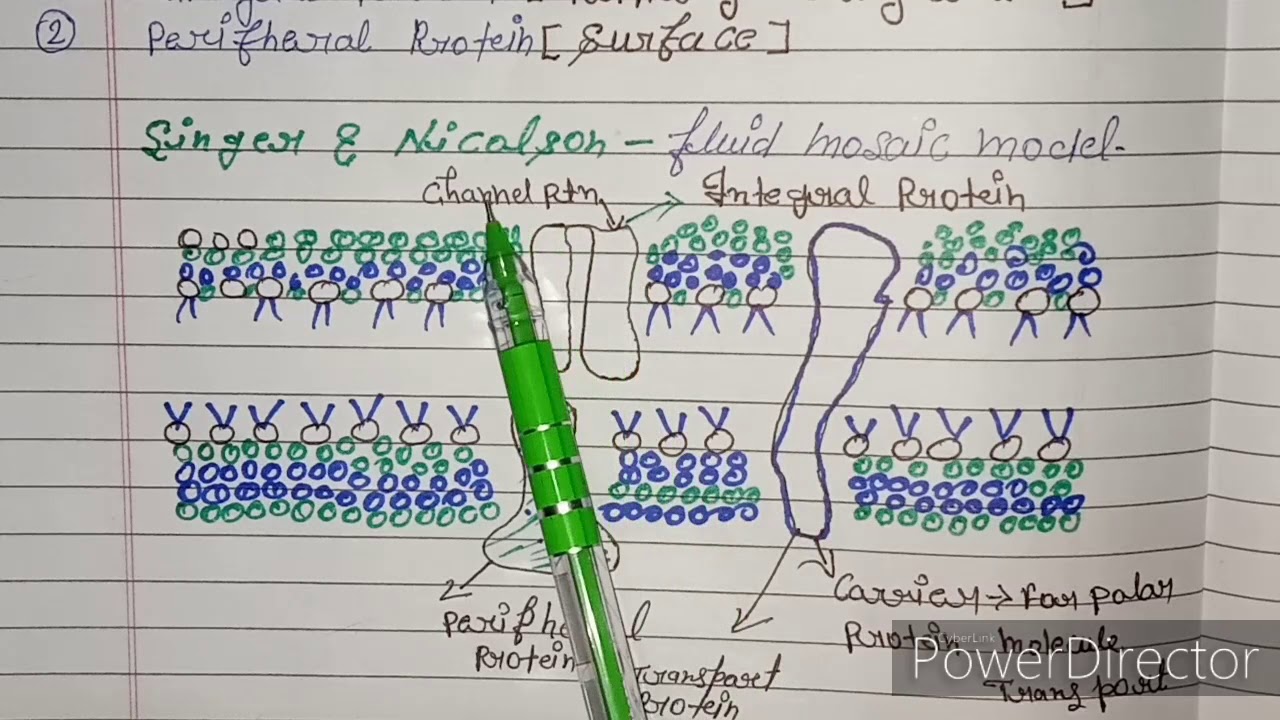 ②
Perifharal Protein [Surface]
Singer & Nicalson - fluid mosaic model.
Channel Rtn
Integral Protein
Perifh l
Protein
Transpart
Protein
Carrier → For palar
Protein molecule
Transport
CyberLink
PowerDirector